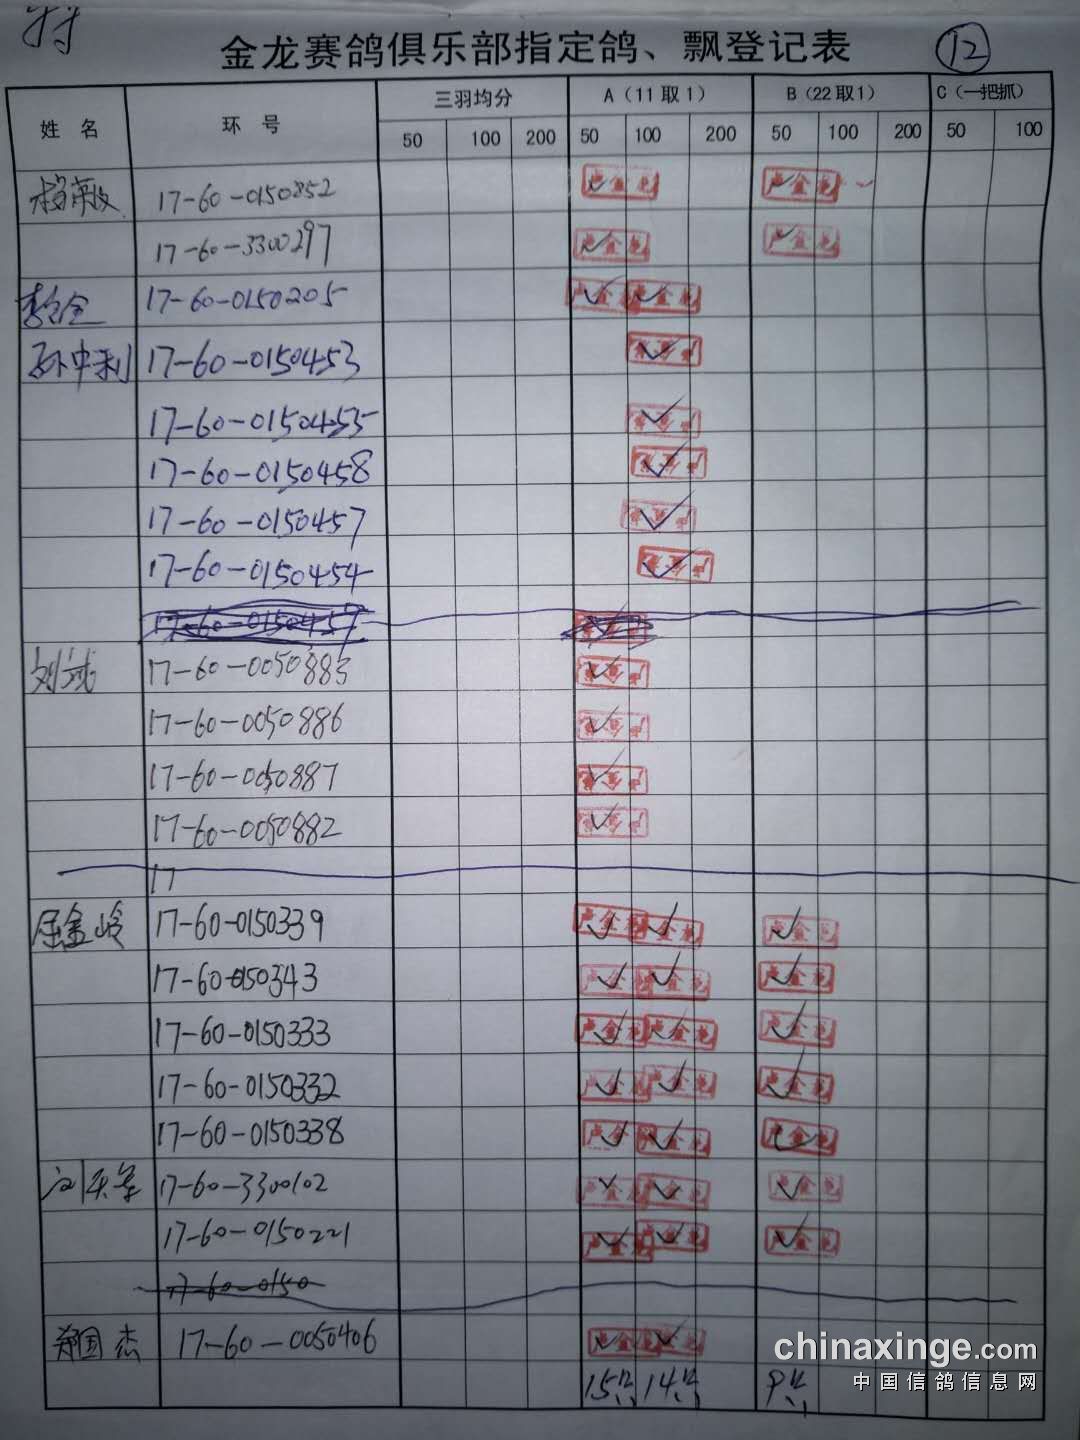 金龙赛鸽俱乐部指定鸽、飘登记表 12
姓 名 环 号 三羽均分 A（11取1） B（22取1） C（一把抓）
50 100 200 50 100 200 50 100 200 50 100
17-60-0150852 卢金龙 卢金龙
17-60-3300297 卢金龙 卢金龙
17-60-0150205 卢金龙 卢金龙
孙中利 17-60-0150453
17-60-0150455
17-60-0150458
17-60-0150457
17-60-0150454
17-60-0150457
刘斌 17-60-0050883
17-60-0050886
17-60-0050887
17-60-0050882
17
屈金岭 17-60-0150339 卢金龙 卢金龙 卢金龙
17-60-0150343 卢金龙 卢金龙 卢金龙
17-60-0150333 卢金龙 卢金龙 卢金龙
17-60-0150332 卢金龙 卢金龙 卢金龙
17-60-0150338 卢金龙 卢金龙 卢金龙
17-60-3300102 卢金龙 卢金龙 卢金龙
17-60-0150221 卢金龙 卢金龙 卢金龙
17-60-0150
郑国杰 17-60-0050406 卢金龙 卢金龙
15 14 9
chinaxinge.com
中国信鸽信息网